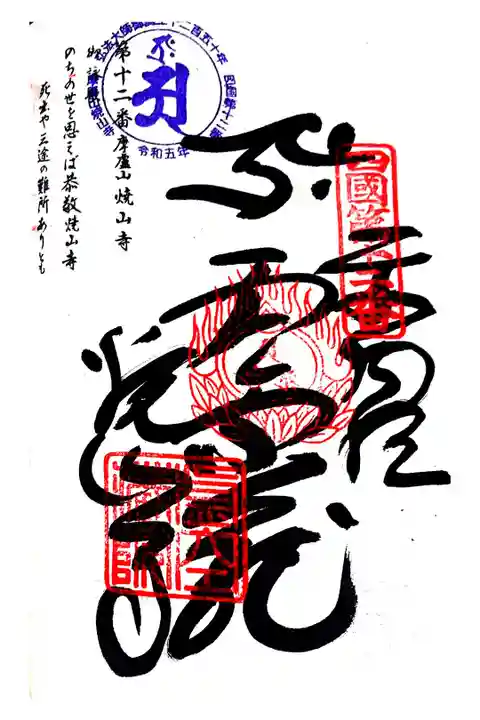 四國第十二番
奉経
虚空蔵
焼山寺
弘法大師御誕生千二百五十年
四国第十二番
焼山寺
令和五年
第十二番 摩廬山 焼山寺
御詠歌
のちの世を思えば恭敬焼山寺
死出や三途の難所ありとも